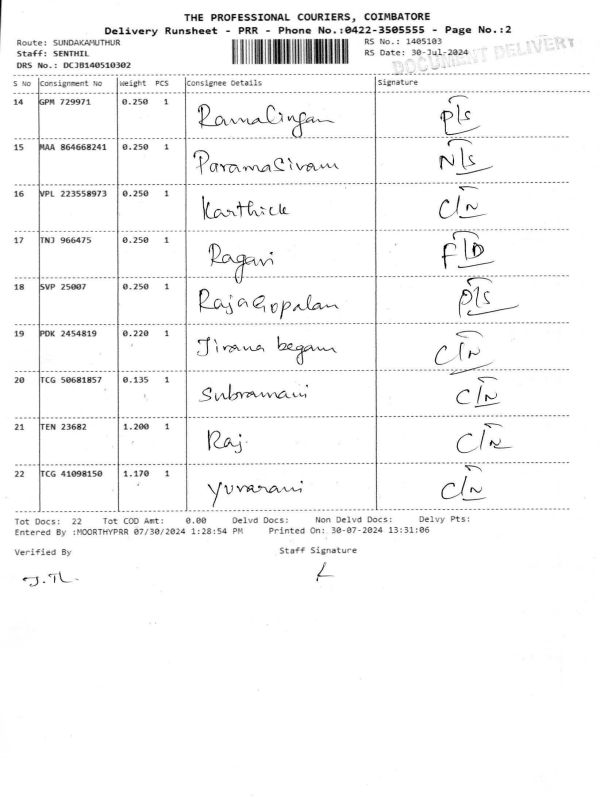 THE PROFESSIONAL COURIERS, COIMBATORE
Delivery Runsheet - PRR - Phone No.:0422-3505555 - Page No.:2
Route: SUNDAKAMUTHUR RS No.: 1405103
Staff: SENTHIL RS Date: 30-Jul-2024
DRS No.: DCJB140510302
DOCUMENT DELIVERY
S No Consignment No Weight PCS Consignee Details Signature
14 GPM 729971 0.250 1 Ramalingam P/s
15 MAA 864668241 0.250 1 ParamaSivam N/s
16 VPL 223558973 0.250 1 Karthick C/N
17 TNJ 966475 0.250 1 Ragavi F/D
18 SVP 25007 0.250 1 RajaGopalan P/s
19 PDK 2454819 0.220 1 begam C/N
20 TCG 50681857 0.135 1 Subramani C/N
21 TEN 23682 1.200 1 Raj C/N
22 TCG 41098150 1.170 1 Yuvarani C/N
Tot Docs: 22 Tot COD Amt: 0.00 Delvd Docs: Non Delvd Docs: Delvy Pts:
Entered By :MOORTHYPRR 07/30/2024 1:28:54 PM Printed On: 30-07-2024 13:31:06
Verified By Staff Signature